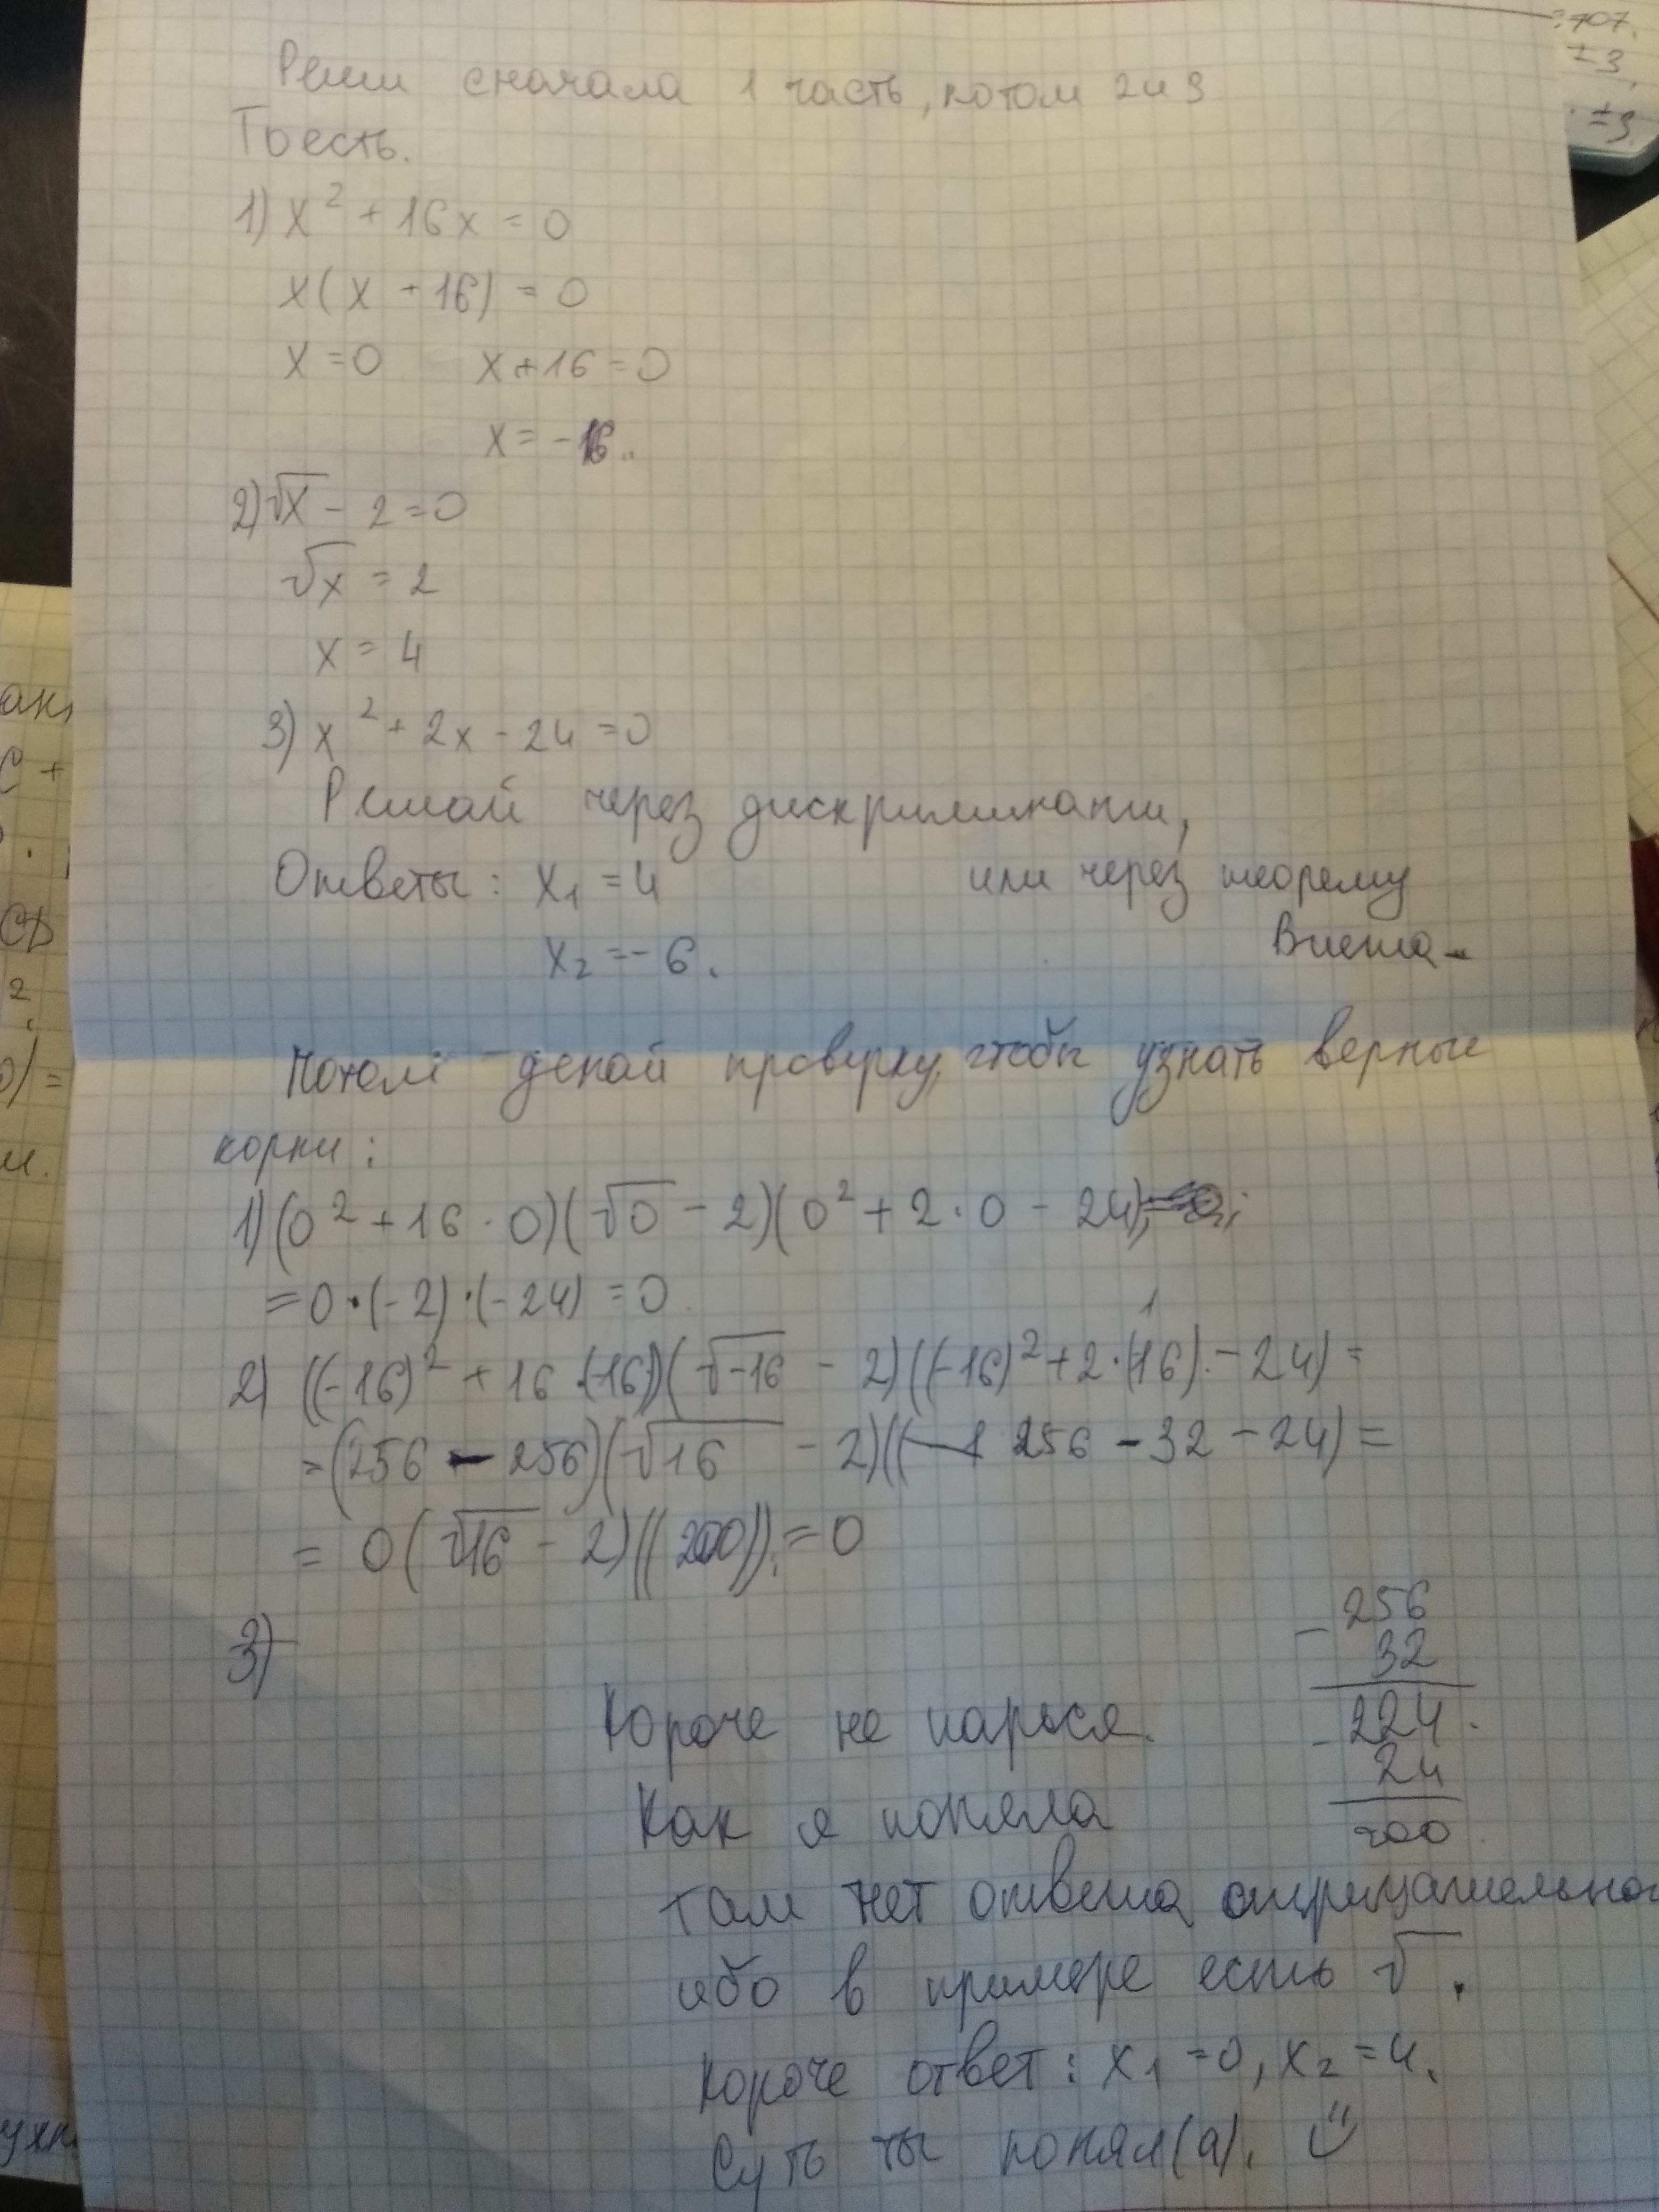 Реши сначала 1 часть, потом 2 и 3
То есть.
1) x² + 16x = 0
x(x + 16) = 0
x = 0 x + 16 = 0
x = -16.
2) √x - 2 = 0
√x = 2
x = 4
3) x² + 2x - 24 = 0
Решай через дискриминант,
или через теорему
Виета
Ответы: x₁ = 4
x₂ = -6.
Потом делай проверку, чтобы узнать верные
корни:
1) (0² + 16 · 0)(√0 - 2)(0² + 2 · 0 - 24)
= 0 · (-2) · (-24) = 0
2) ((-16)² + 16 · (-16))(√-16 - 2)((-16)² + 2 · (-16) - 24) =
= (256 - 256)(√16 - 2)((256 - 32 - 24) =
= 0(√16 - 2)((200)) = 0
3)
256
- 32
224
- 24
200
Короче не парься.
Как я поняла
там нет ответа отрицательного
ибо в примере есть √ .
Короче ответ: x₁ = 0, x₂ = 4.
Суть ты понял(а).